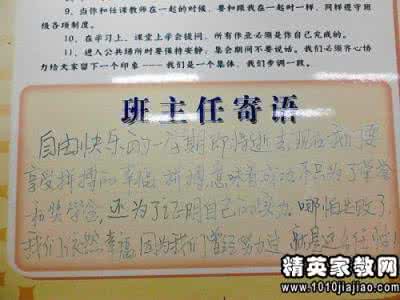 9、当你和任课教师在一起的时候，要和跟我在一起时一样，同样遵守班
级各项制度。
10、在学习上，课堂上学会提问，所有作业必须是你自己完成的。
11、进入公共场所时要保持安静；集会期间不要说话。我们必须齐心协
力给大家留下一个印象——我们是一个集体，我们步调一致。
班主任寄语
自由快乐的一星期即将逝去，现在我们要
享受拼搏的幸福，拼搏意味着成功，不只为了荣誉
和奖学金，还为了证明自己的实力。哪怕失败了
我们仍然幸福，因为我们曾经努力过，
精英家教网
www.1010jiajiao.com